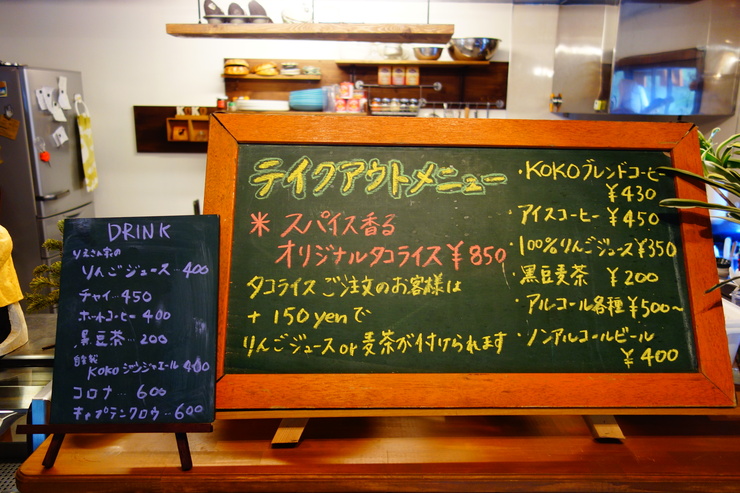 DRINK
りえさん家の
りんごジュース…400
チャイ…450
ホットコーヒー 400
黒豆茶…200
自家製
KOKOジンジャエール 400
コロナ…600
キャプテンクロウ…600
テイクアウトメニュー
* スパイス香る
オリジナルタコライス ¥850
タコライスご注文のお客様は
+150yenで
りんごジュースor麦茶が付けられます
・KOKOブレンドコーヒー
¥430
・アイスコーヒー ¥450
・100%りんごジュース ¥350
・黒豆麦茶 ¥200
・アルコール各種 ¥500~
・ノンアルコールビール
¥400